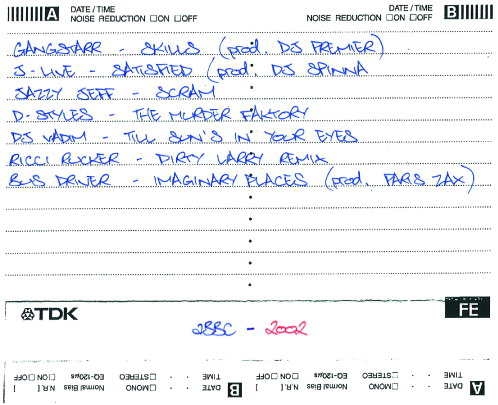 A DATE/TIME
NOISE REDUCTION □ON □OFF
DATE/TIME B
NOISE REDUCTION □ON □OFF
GANGSTARR - SKILLS (prod. DJ PREMIER)
J-LIVE - SATISFIED (prod. DJ SPINNA
JAZZY JEFF - SCRAM
D-STYLES - THE MURDER FAKTORY
DJ VADIM - TILL SUN'S IN YOUR EYES
RICCI RUCKER - DIRTY LARRY REMIX
BUS DRIVER - IMAGINARY PLACES (prod. PARIS ZAX)
TDK
FE
2BBC - 2002
A DATE · · □MONO Normal Bias [N.R. ]
TIME □STEREO EQ-120µs □ON □OFF
B DATE · · □MONO Normal Bias [N.R. ]
TIME □STEREO EQ-120µs □ON □OFF